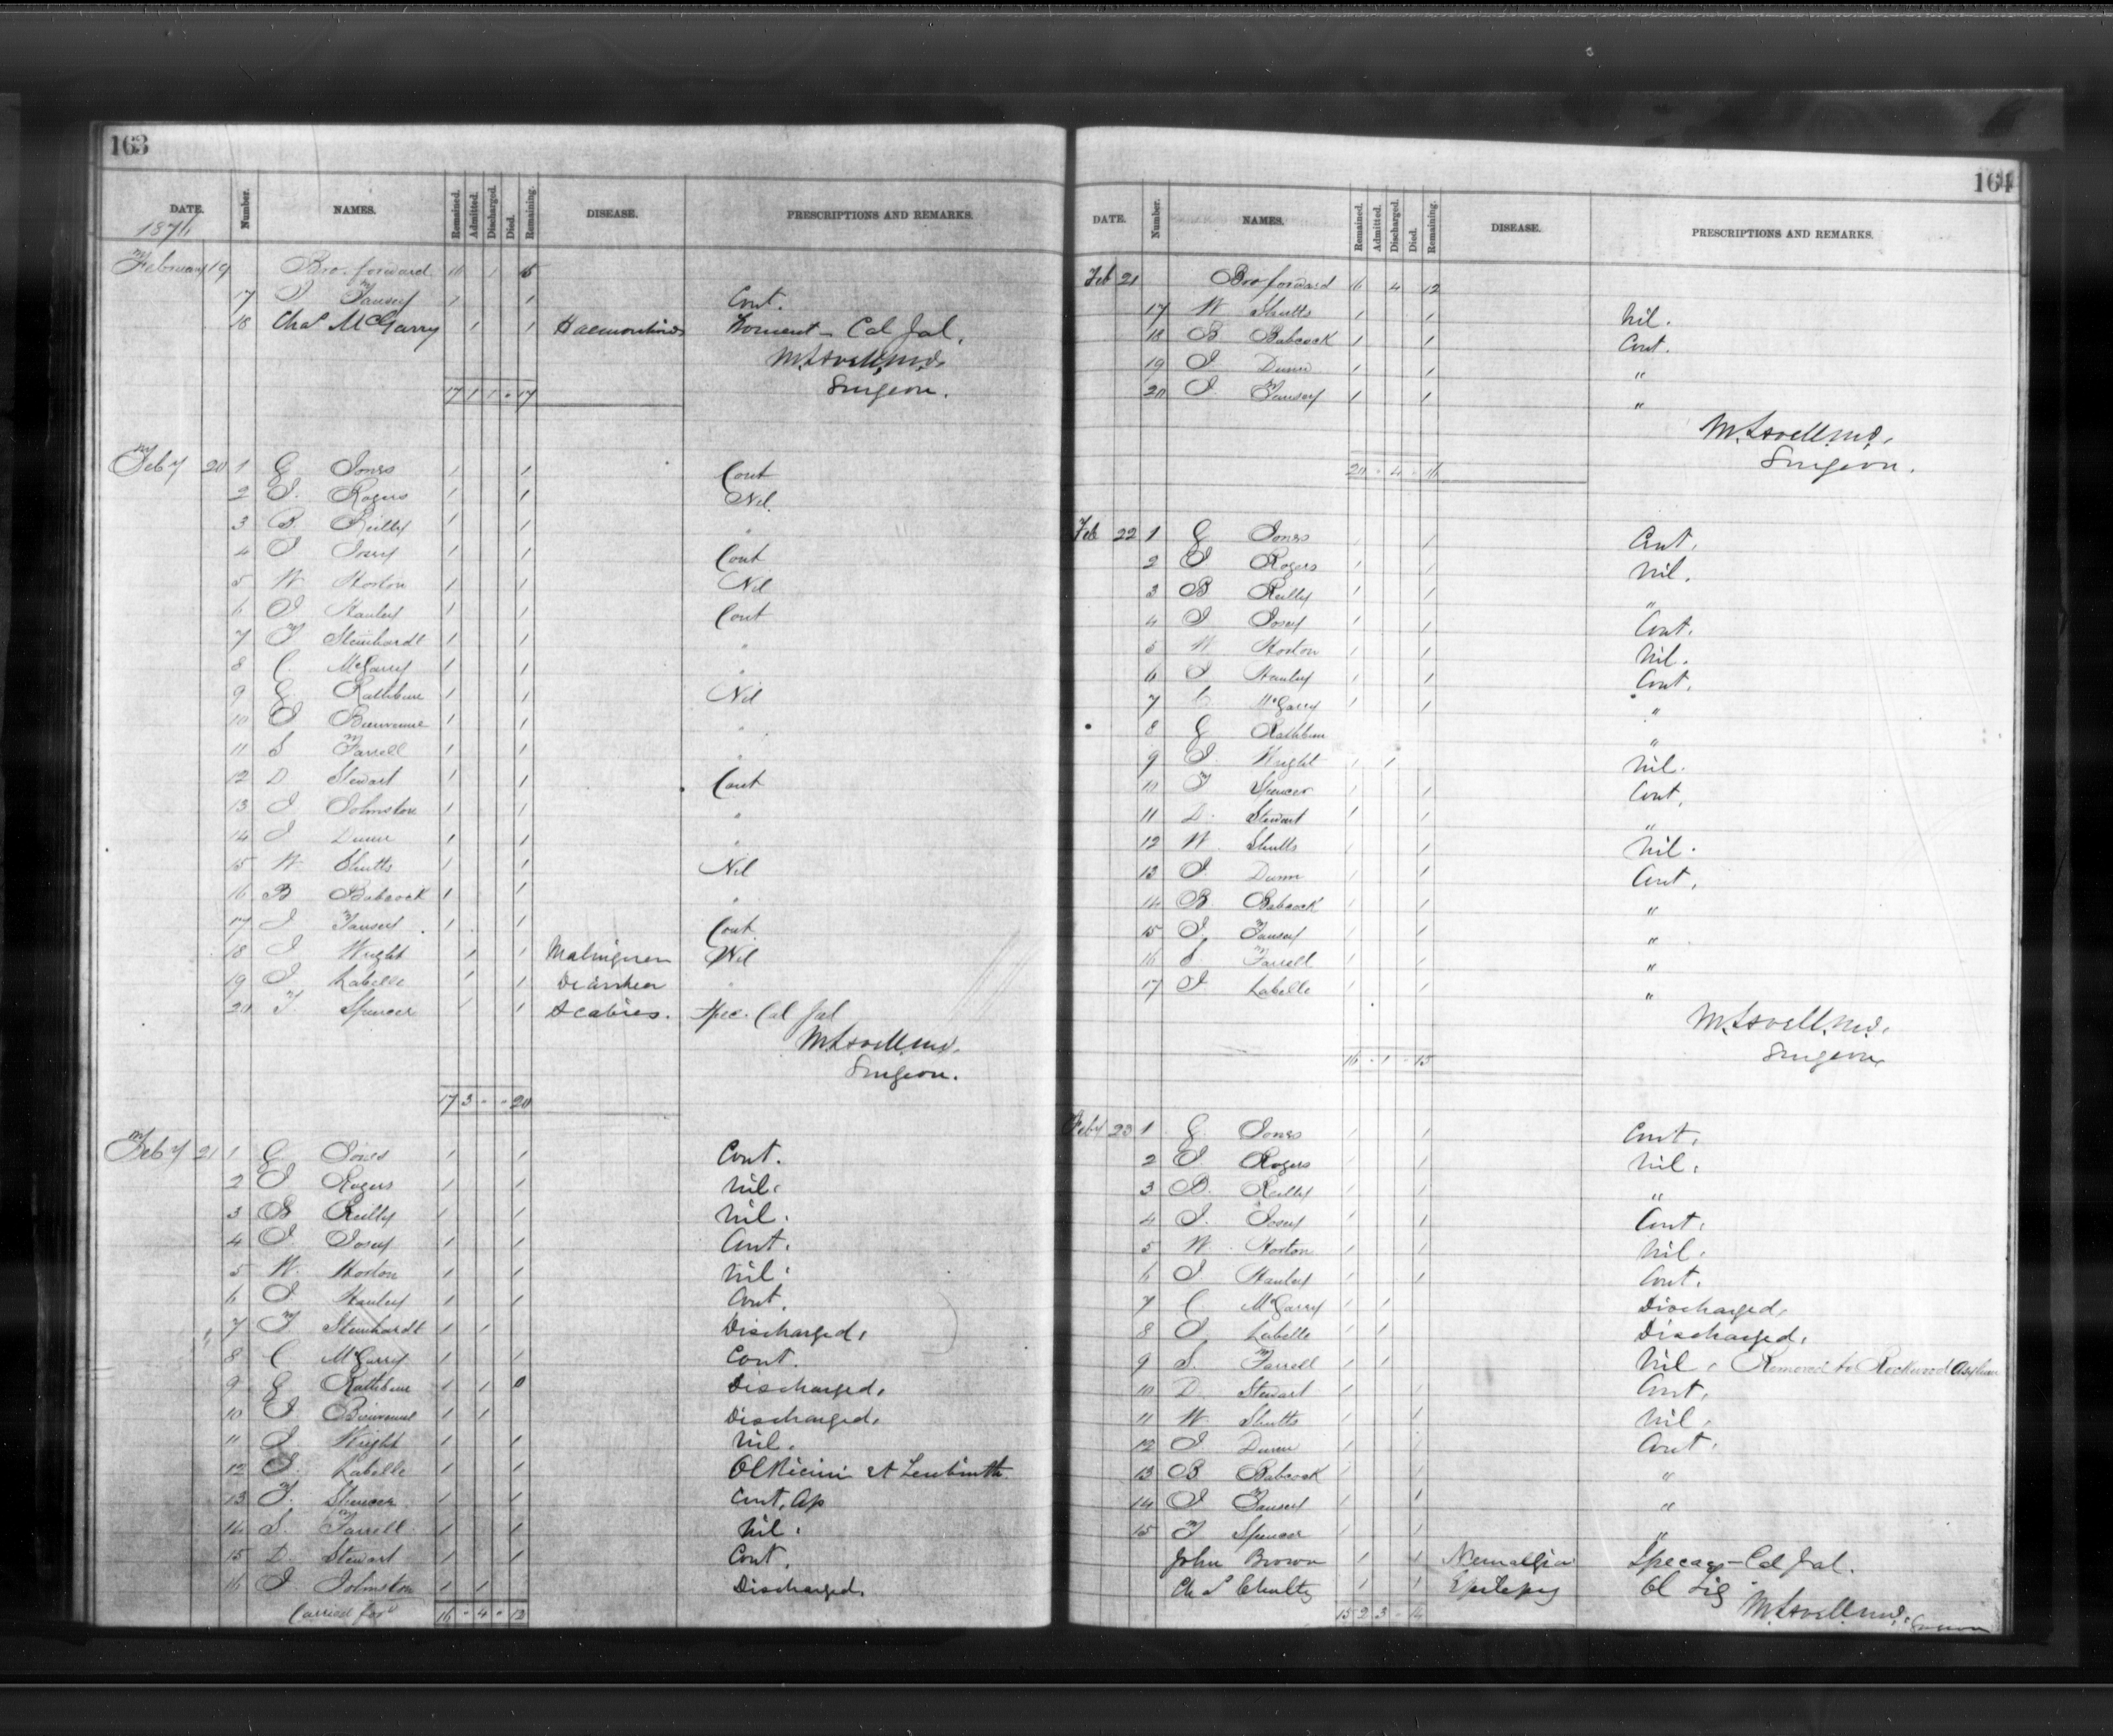 163
DATE. Number. NAMES. Remained. Admitted. Discharged. Died. Remaining. DISEASE. PRESCRIPTIONS AND REMARKS.
187
February 19 Bro. forward 16 1 15
17 J Tansey 1 1 Cont.
18 Chas McGarry 1 1 Foment - Cal Jal.
M. Lavell, M.D.
Surgeon.
17 1 1 - 17
Feby 20 1 G Jones 1 1 Cont
2 J. Rogers 1 1 Nil.
3 B. Reilly 1 1 "
4 J 1 1 Cont
5 W Horton 1 1 Nil
6 J Hanley 1 1 Cont
7 F Steinhardt 1 1 "
8 C. McGarry 1 1 "
9 G. Rathbun 1 1 Nil
10 J Bienvenue 1 1 "
11 S Farrell 1 1 "
12 D Stewart 1 1 Cont
13 J Johnston 1 1 "
14 J Dunn 1 1 "
15 W Shutts 1 1 Nil
16 B Babcock 1 1 "
17 J Tansey 1 1 Cont
18 J Wright 1 1 Nil
19 J. Labelle 1 1 Diarrhea "
20 F. Spencer 1 1 Scabies. Spec. Cal Jal
M. Lavell M.D.
Surgeon.
17 3 - - 20
Feby 21 1 G Jones 1 1 Cont.
2 J Rogers 1 1 Nil.
3 B Reilly 1 1 Nil.
4 J 1 1 Cont.
5 W. Horton 1 1 Nil.
6 J Hanley 1 1 Cont.
7 F Steinhardt 1 1 Discharged.
8 C McGarry 1 1 Cont.
9 G Rathbun 1 1 0 Discharged.
10 J Bienvenue 1 1 Discharged.
11 J Wright 1 1 Nil.
12 J. Labelle 1 1 Ol Ricini et
13 F. Spencer 1 1 Cont. Ap
14 S. Farrell 1 1 Nil.
15 D. Stewart 1 1 Cont.
16 J. Johnston 1 1 Discharged.
Carried ford 16 - 4 - 12
164
DATE. Number. NAMES. Remained. Admitted. Discharged. Died. Remaining. DISEASE. PRESCRIPTIONS AND REMARKS.
Feb 21 Bro forward 16 4 12
17 W Shutts 1 1 Nil.
18 B Babcock 1 1 Cont.
19 J Dunn 1 1 "
20 J. Tansey 1 1 "
M. Lavell M.D.
Surgeon.
20 - 4 - 16
Feb 22 1 G Jones 1 1 Cont.
2 J Rogers 1 1 Nil.
3 B Reilly 1 1 "
4 J 1 1 Cont.
5 W Horton 1 1 Nil.
6 J Hanley 1 1 Cont.
7 C. McGarry 1 1 "
8 G Rathbun "
9 J. Wright 1 1 Nil.
10 F Spencer 1 1 Cont.
11 D. Stewart 1 1 "
12 W. Shutts 1 1 Nil.
13 J. Dunn 1 1 Cont.
14 B Babcock 1 1 "
15 J. Tansey 1 1 "
16 S Farrell 1 1 "
17 J. Labelle 1 1 "
M. Lavell M.D.
Surgeon
16 - 1 - 15
Feby 23 1 G Jones 1 1 Cont.
2 J Rogers 1 1 Nil.
3 B. Reilly 1 1 "
4 J. 1 1 Cont.
5 W. Horton 1 1 Nil.
6 J Hanley 1 1 Cont.
7 C. McGarry 1 1 Discharged.
8 J. Labelle 1 1 Discharged.
9 S. Farrell 1 1 Nil. Removed to Rockwood Asylum
10 D. Stewart 1 1 Cont.
11 W. Shutts 1 1 Nil.
12 J. Dunn 1 1 Cont.
13 B Babcock 1 1 "
14 J Tansey 1 1 "
15 F Spencer 1 1 "
John Brown 1 1 Neuralgia - Cal Jal.
Chs Chultz 1 1 Epilepsy
M. Lavell M.D. Surgeon
15 2 3 - 14